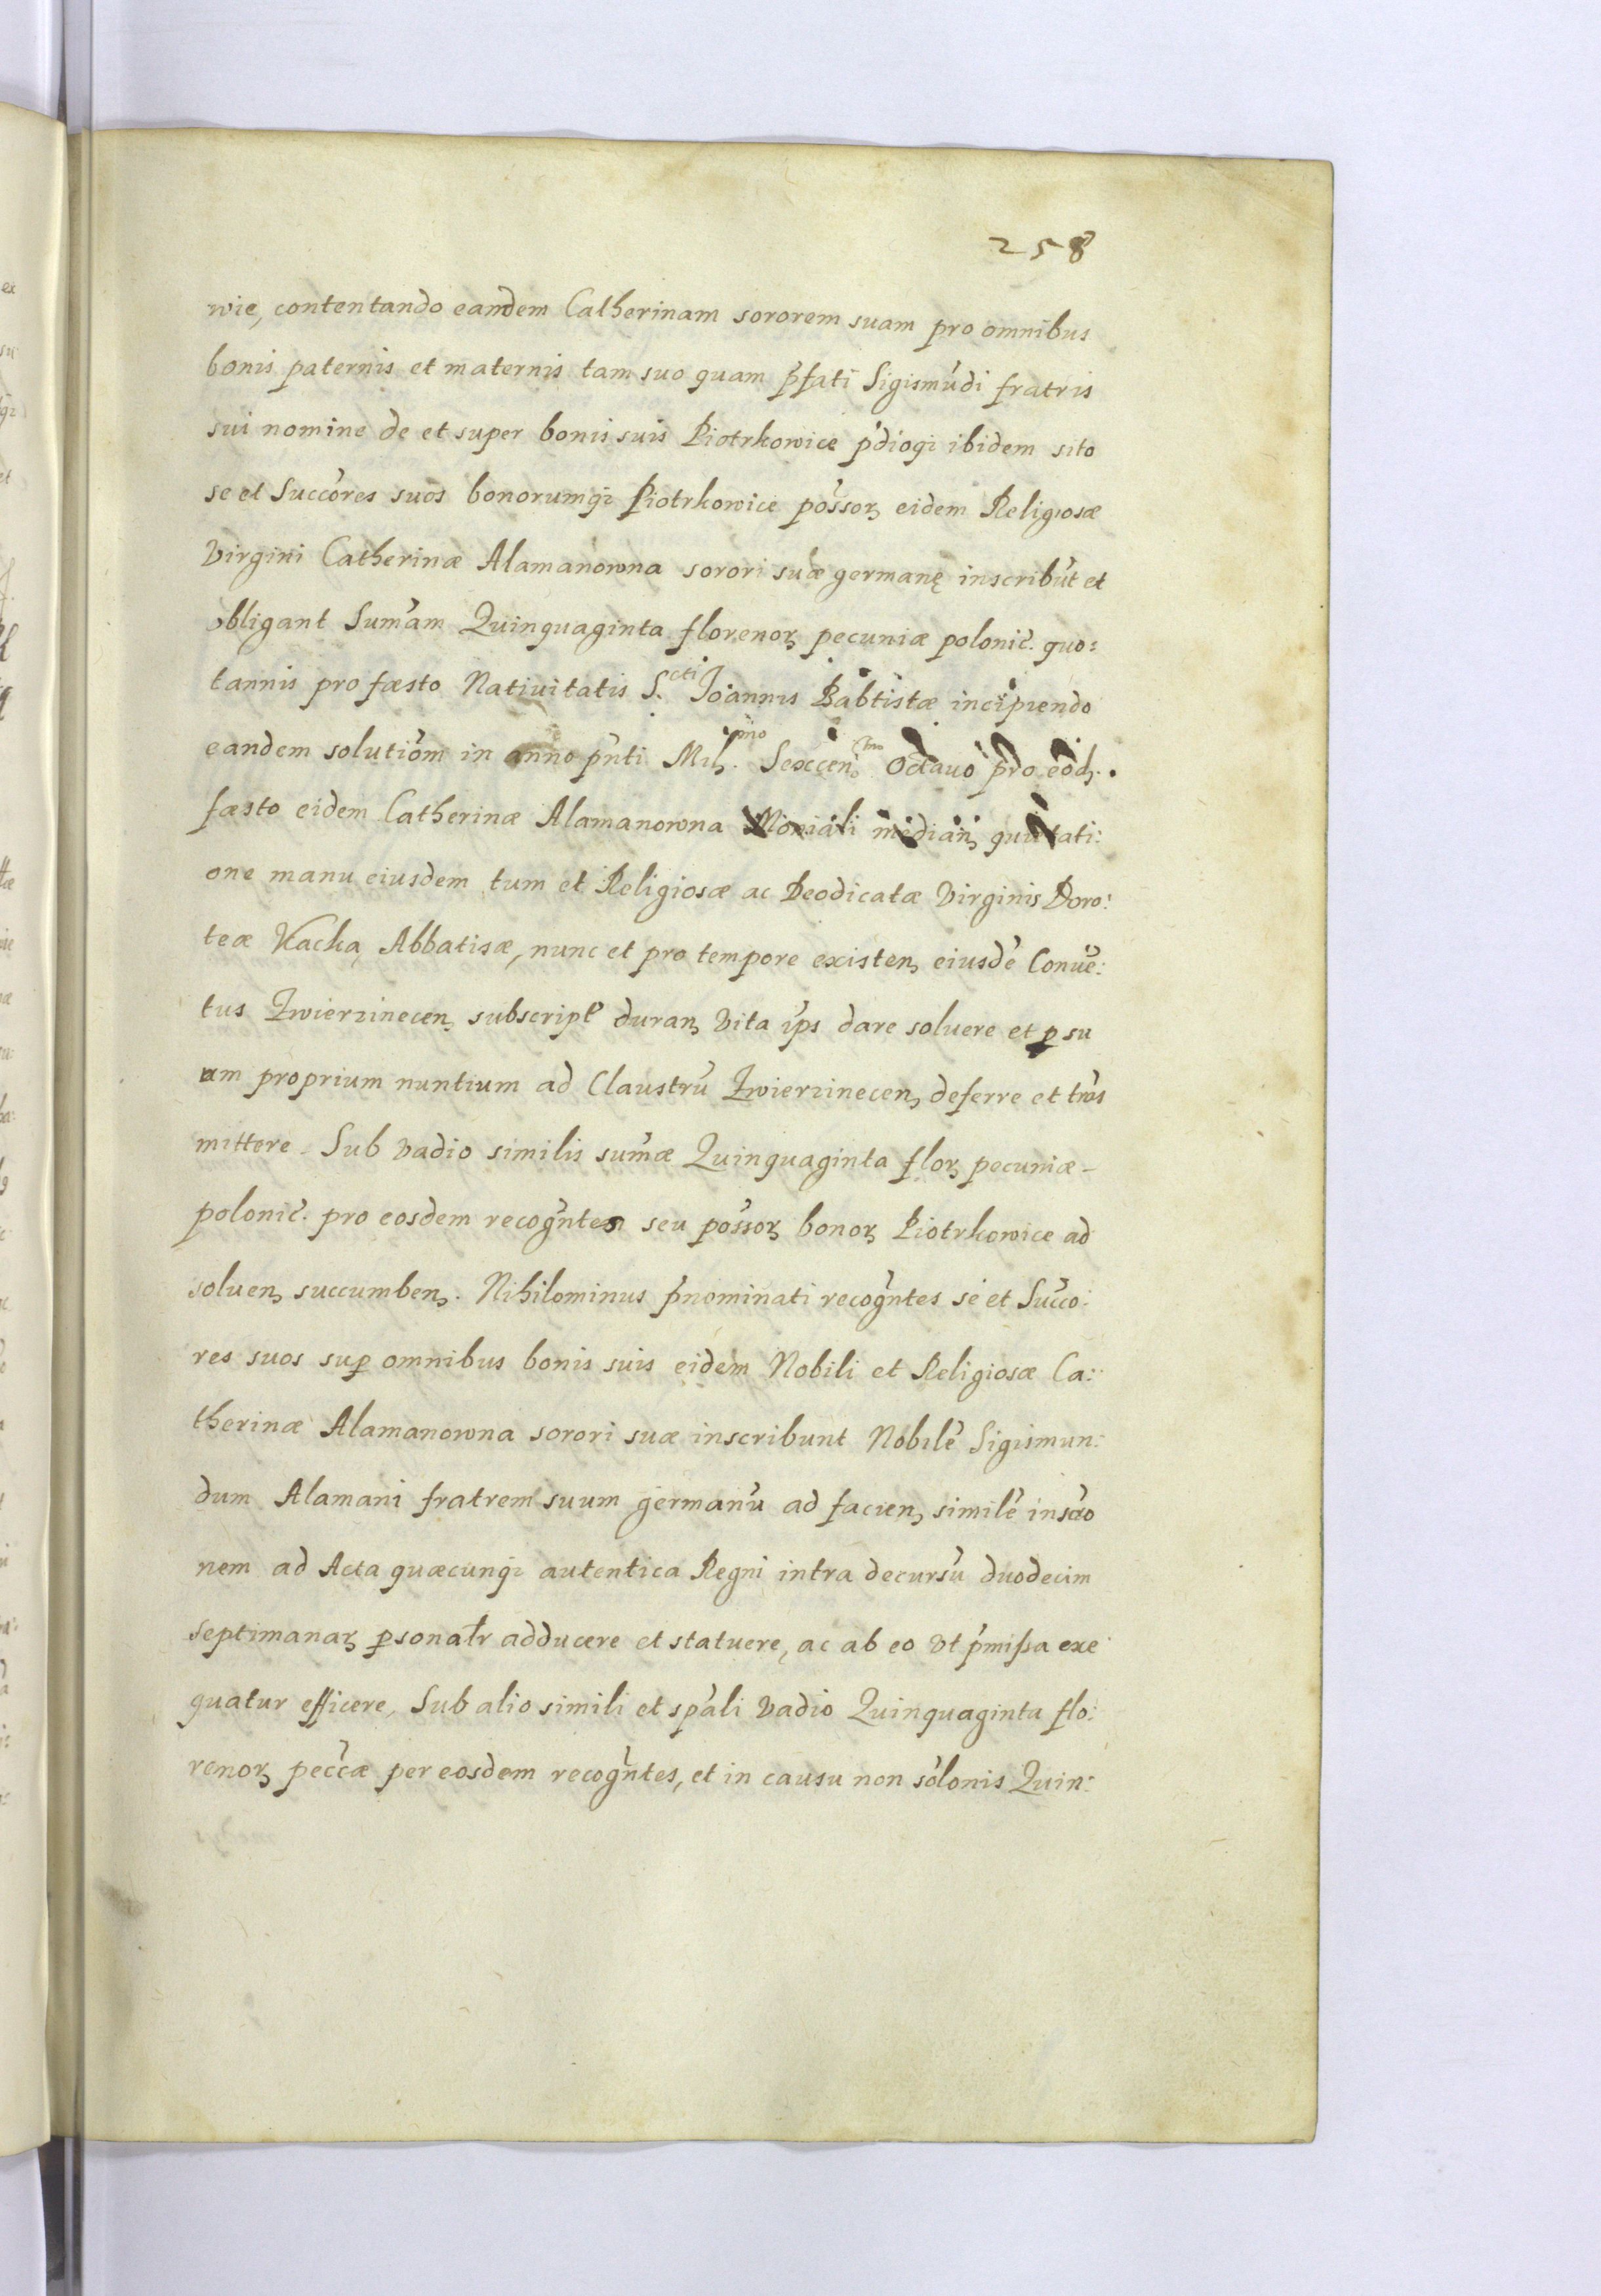 258
wie, contentando eandem Catherinam sororem suam pro omnibus
bonis paternis et maternis tam suo quam p̄fati Sigismūdi fratris
sui nomine de et super bonis suis Piotrkowice p̄dioq̨ ibidem sito
se et Succōres suos bonorumq̨ Piotrkowice pōssoꝝ eidem Religiosæ
Virgini Catherinæ Alamanowna sorori suæ germanę inscribūt et
obligant Sum̄am Quinquaginta florenoꝝ pecuniæ polonic̄. quo:
tannis pro fæsto Natiuitatis S.cti Joannis Babtistæ incipiendo
eandem solutiōm in anno pn̄ti Mil̨.imo Sexcen̨.mo Octauo pro eod̨.
fæsto eidem Catherinæ Alamanowna Moniali median̨ quietati:
one manu eiusdem tum et Religiosæ ac Deodicatæ Virginis Doro:
teæ Kącka, Abbatisæ, nunc et pro tempore existen̨ eiusdē Conuē:
tus Zwierzinecen̨ subscript duran̨ Vita ip̄s dare soluere et ꝑ su
um proprium nuntium ad Claustrū Zwierzinecen̨ deferre et trās
mittere. Sub vadio similis sum̄æ Quinquaginta floꝝ pecuniæ
polonic̄. pro eosdem recogn̄tes seu pōssoꝝ bonoꝝ Piotrkowice ad
soluen̨ succumben̨. Nihilominus p̄nominati recogn̄tes se et Succo:
res suos suꝑ omnibus bonis suis eidem Nobili et Religiosæ Ca:
therinæ Alamanowna sorori suæ inscribunt Nobilē Sigismun:
dum Alamani fratrem suum germanū ad facien̨ similē inscr̄o
nem ad Acta quæcunq̨ autentica Regni intra decursū duodecim
septimanaꝝ ꝑsonalr adducere et statuere, ac ab eo Vt p̄missa exe
quatur efficere, Sub alio simili et spāli Vadio Quinquaginta flo:
renoꝝ pecc̄æ per eosdem recogn̄tes, et in causu non sōlonis Quin: